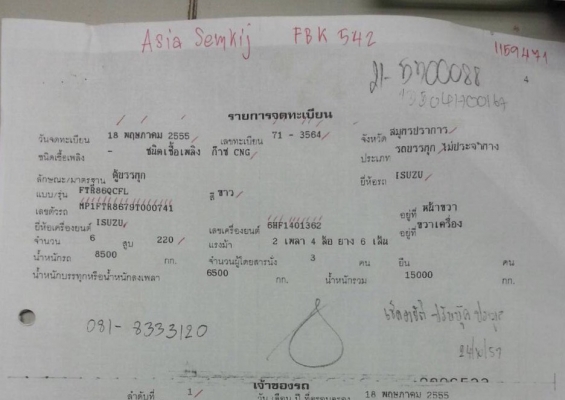 Asia Semkij FBK 542
1159471
4
รายการจดทะเบียน
วันจดทะเบียน 18 พฤษภาคม 2555 เลขทะเบียน 71 - 3564 จังหวัด สมุทรปราการ
ชนิดเชื้อเพลิง - ชนิดเชื้อเพลิง ก๊าซ CNG ประเภท รถบรรทุก ไม่ประจำทาง
ลักษณะ/มาตรฐาน ตู้บรรทุก ยี่ห้อรถ ISUZU
แบบ/รุ่น FTR86QCFL สี ขาว
เลขตัวรถ MP1FTR8679T000741 อยู่ที่ หน้าขวา
ยี่ห้อเครื่องยนต์ ISUZU เลขเครื่องยนต์ 6HF1401362 อยู่ที่ ขวาเครื่อง
จำนวน 6 สูบ 220 แรงม้า 2 เพลา 4 ล้อ ยาง 6 เส้น
น้ำหนักรถ 8500 กก. จำนวนผู้โดยสารนั่ง 3 คน ยืน คน
น้ำหนักบรรทุกหรือน้ำหนักลงเพลา 6500 กก. น้ำหนักรวม 15000 กก.
081-8333120
เจ้าของรถ
ลำดับที่ 1 วัน เดือน ปี ที่ครอบครอง 18 พฤษภาคม 2555